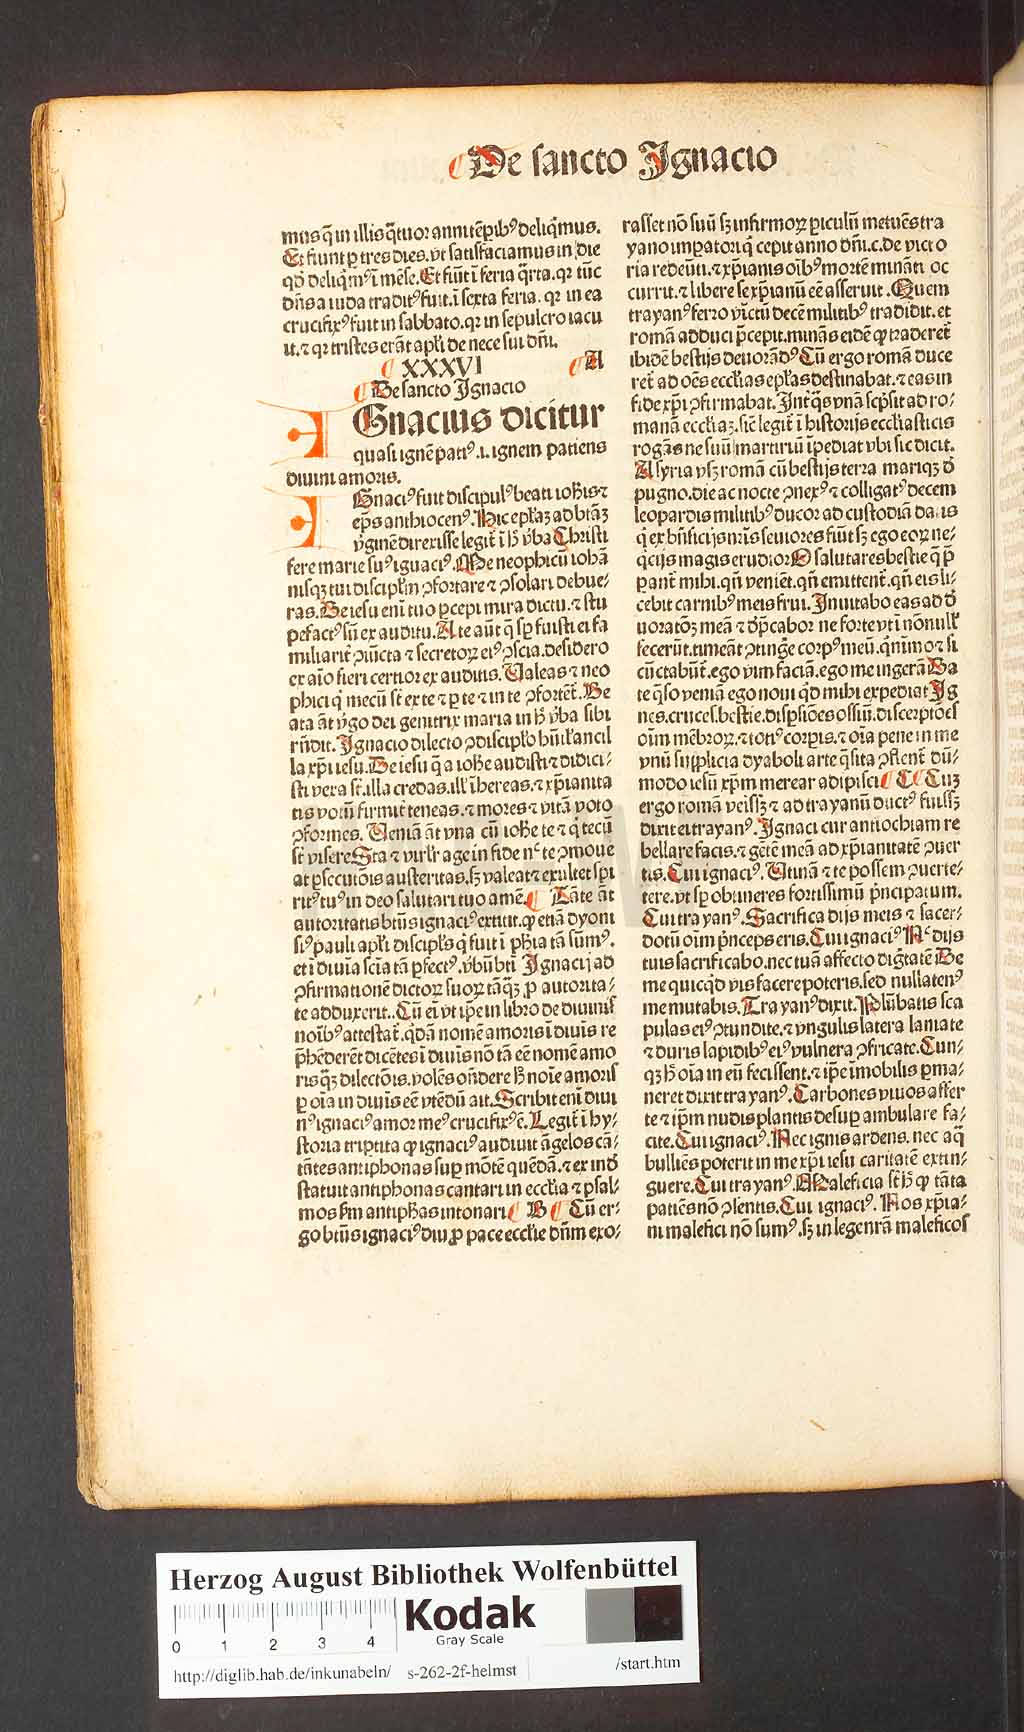 De sancto Ignacio
musq̄ in illis q̄tuor anni tēꝑib⁹ deliq̄mus.
Et fiunt ꝑ tres dies. vt satisfaciamus in die
qd̄ deliq̄m⁹ ī mēse. Et fiūt ī feria q̄rta. qꝛ tūc
dn̄s a iuda tradit⁹ fuit. ī sexta feria. qꝛ in ea
crucifix⁹ fuit in sabbato. qꝛ in sepulcro iacu
it. ⁊ qꝛ tristes erāt apl̄i de nece sui dn̄i.
XXXVI A
De sancto Ignacio
IGnacius dicitur
quasi ignē pati⁹. i. ignem patiens
diuini amoris.
IGnaci⁹ fuit discipul⁹ beati ioh̄is ⁊
ep̄s anthiocen⁹. Hic epl̄aꝫ ad btāꝫ
v̄ginē direxisse legit̄ ī h̄ v̄ba Christi
fere marie su⁹ iguaci⁹. Me neophicū iohā
nisqꝫ tui discipl̄m ꝯfortare ⁊ ꝯsolari debue⸗
ras. De iesu eni tuo ꝑcepi mira dictu. ⁊ stu
pefact⁹ sū ex auditu. A te aūt q̄ sꝑ fuisti ei fa
miliarit̄ ꝯiūcta ⁊ secretoꝝ ei⁹ ꝯscia. desidero
ex aīo fieri certior ex auditis. Valeas ⁊ neo
phici q̄ mecū st̄ ex te ⁊ ꝑ te ⁊ in te ꝯfortēt̄. Be
ata āt v̄go dei genitrix maria in h̄ v̄ba sibi
rn̄dit. Ignacio dilecto ꝯdiscipl̄o hūil̄ ancil
la xp̄i iesu. De iesu q̄ a ioh̄e audisti ⁊ didici⸗
sti vera st̄. illa credas. ill̄ īhereas. ⁊ xp̄ianita
tis votū firmit̄ teneas. ⁊ mores ⁊ vitā voto
ꝯformes. Veniā āt vna cū ioh̄e te ⁊ q̄ tecū
st̄ visere Sta ⁊ viril̄r age in fide nᶜ te ꝯmoue
at ꝑsecutōis austeritas. sꝫ valeat ⁊ exultet spi
rit⁹ tu⁹ in deo salutari tuo amē. Tāte āt
autoritatis btūs ignaci⁹ extitit. ꝙ etiā dyoni
si⁹ pauli apl̄i discipl̄s q̄ fuit ī ph̄ia tā sūm⁹.
et ī diuīa scīa tā ꝑfect⁹. v̄bū btī Ignacij ad
ꝯfirmationē dictoꝝ suoꝝ tāq̄ꝫ ꝓ autorita⸗
te adduxerit.. Cū ei vt ip̄e in libro de diuinis
noīb⁹ attestat̄. q̄dā nomē amoris ī diuīs re
p̄hēderēt dicētes ī diuīs nō tā eē nomē amo
ris q̄ꝫ dilectōis. volēs on̄dere h̄ noīe amoris
ꝑ oīa in diuīs eē vtēdū ait. Scribit eni diui
n⁹ ignaci⁹ amor me⁹ crucifix⁹ ē. Legit̄ ī hy⸗
storia triptita ꝙ ignaci⁹ audiuit āgelos cā⸗
tātes antiphonas suꝑ mōtē quēdā. ⁊ ex ind̄
statuit antiphonas cantari in eccl̄ia ⁊ psal⸗
mos fm̄ antiph̄as intonari B Cū er⸗
go btūs ignaci⁹ diu ꝓ pace eccl̄ie dn̄m exo⸗
rasset nō suū sꝫ infirmoꝝ ꝑiculū metuēs tra
yano impatori q̄ cepit anno dn̄i. c. de victo
ria redeūti. ⁊ xp̄ianis oīb⁹ mortē mināti oc
currit. ⁊ libere se xp̄ianū eē asseruit. Quem
trayan⁹ ferro vīctū decē militib⁹ tradidit. et
romā adduci p̄cepit. minās eidē ꝙ traderet̄
ibidē bestijs deuorād⁹ Cū ergo romā duce
ret̄ ad oēs eccl̄ias epl̄as destinabat. ⁊ eas in
fide xp̄i ꝯfirmabat. Int̄ q̄s vnā scp̄sit ad ro⸗
manā eccl̄iaꝫ. sic̄ legit̄ ī historijs eccl̄iasticis
rogās ne suū martiriū īpediāt vbi sic dicit.
A syria vsꝫ romā cū bestijs terra mariqꝫ d̄
pugno. die ac nocte ꝯnex⁹ ⁊ colligat⁹ decem
leopardis militib⁹ ducor ad custodiā datis
q̄ ex bn̄ficijs nr̄is seuiores fiūt sꝫ ego eoꝝ ne⸗
q̄cijs magis erudior O salutares bestie q̄ p̄
ꝑant̄ mihi. qn̄ veniēt. qn̄ emittent̄. qn̄ eis li⸗
cebit carnib⁹ meis frui. Inuitabo eas ad d̄
uoratōꝫ meā ⁊ dep̄cabor ne forte vt ī nōnull̄
fecerūt. timeāt ꝯtinḡe corp⁹ meū. q̄nimo ⁊ si
cūctabūt̄. ego vim faciā. ego me ingerā Da
te q̄so veniā ego noui q̄d mihi expediat Ig
nes. cruces. bestie. disꝑsiōes ossiū. discerptōes
oīm mēbroꝝ. ⁊ toti⁹ corꝑis. ⁊ oīa pene in me
vnū supplicia dyaboli arte q̄sita ꝯflent̄ dū⸗
modo iesū xp̄m merear adipisci C Cuꝫ
ergo romā veissꝫ ⁊ ad trayanū duct⁹ fuissꝫ
dixit ei trayan⁹. Ignaci cur antiochiam re
bellare facis. ⁊ gētē meā ad xp̄ianitatē ꝯuer
tis. Cui ignaci⁹. Vtinā ⁊ te possem ꝯuerte⸗
tere. vt sꝑ obtineres fortissimū p̄ncipatum.
Cui trayan⁹. Sacrifica dijs meis ⁊ sacer⸗
dotū oīm p̄nceps eris. Cui ignaci⁹ Nᶜ dijs
tuis sacrificabo. nec tuā affecto dig̅tatē De
me quicq̄d vis facere poteris. sed nullaten⁹
me mutabis. Trayan⁹ dixit. Plūbatis sca
pulas ei⁹ ꝯtundite. ⁊ vngulis latera laniate
⁊ duris lapidib⁹ ei⁹ vulnera ꝯfricate. Cun⸗
qꝫ h̄ oīa in eū fecissent. ⁊ ip̄e īmobilis ꝑma⸗
neret dixit trayan⁹. Carbones viuos affer
te ⁊ ip̄m nudis plantis desuꝑ ambulare fa⸗
cite. Cui ignaci⁹. Nec ignis ardens. nec aq̄
bulliēs poterit in me xp̄i iesu caritatē extin⸗
guere. Cui trayan⁹. Maleficia st̄ h̄ ꝙ tāta
patiēs nō ꝯsentis. Cui ignaci⁹. Nos xp̄ia⸗
ni malefici nō sum⁹. sꝫ in lege nr̄a maleficos
Herzog August Bibliothek Wolfenbüttel
0 1 2 3 4
Kodak
Gray Scale
http://diglib.hab.de/inkunabeln/ s-262-2f-helmst /start.htm